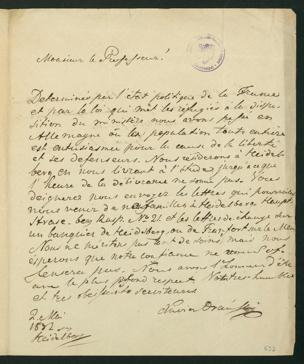 Monsieur le Professeur!
Determinés par l'état politique de la France
et par la loi qui met les réfugiés à la dispo-
sition du ministère nous avons passé en
Allemagne où la population toute entière
est enthousiasmée pour la cause de la liberté
et ses defenseurs. Nous resterons à Heidel-
berg en nous livrant à l'étude jusqu'à que
l'heure de la délivrance ne sonne pas. Vous
daignerez nous envoyer les lettres qui pourraient
nous venir de nos familles à Heidelberg Haupt-
Strasse No. 21 et les lettres de change sur
un banquier de Heidelberg ou de Francfort sur le Mein
Nous ne méritons pas tant de soins, mais nous
esperons que notre confiance ne vous
pas. Nous avons l'honneur d'être
avec le plus profond respect Votre très humbles
et très obeissants serviteurs
2 Mai
1832
Heidelberg